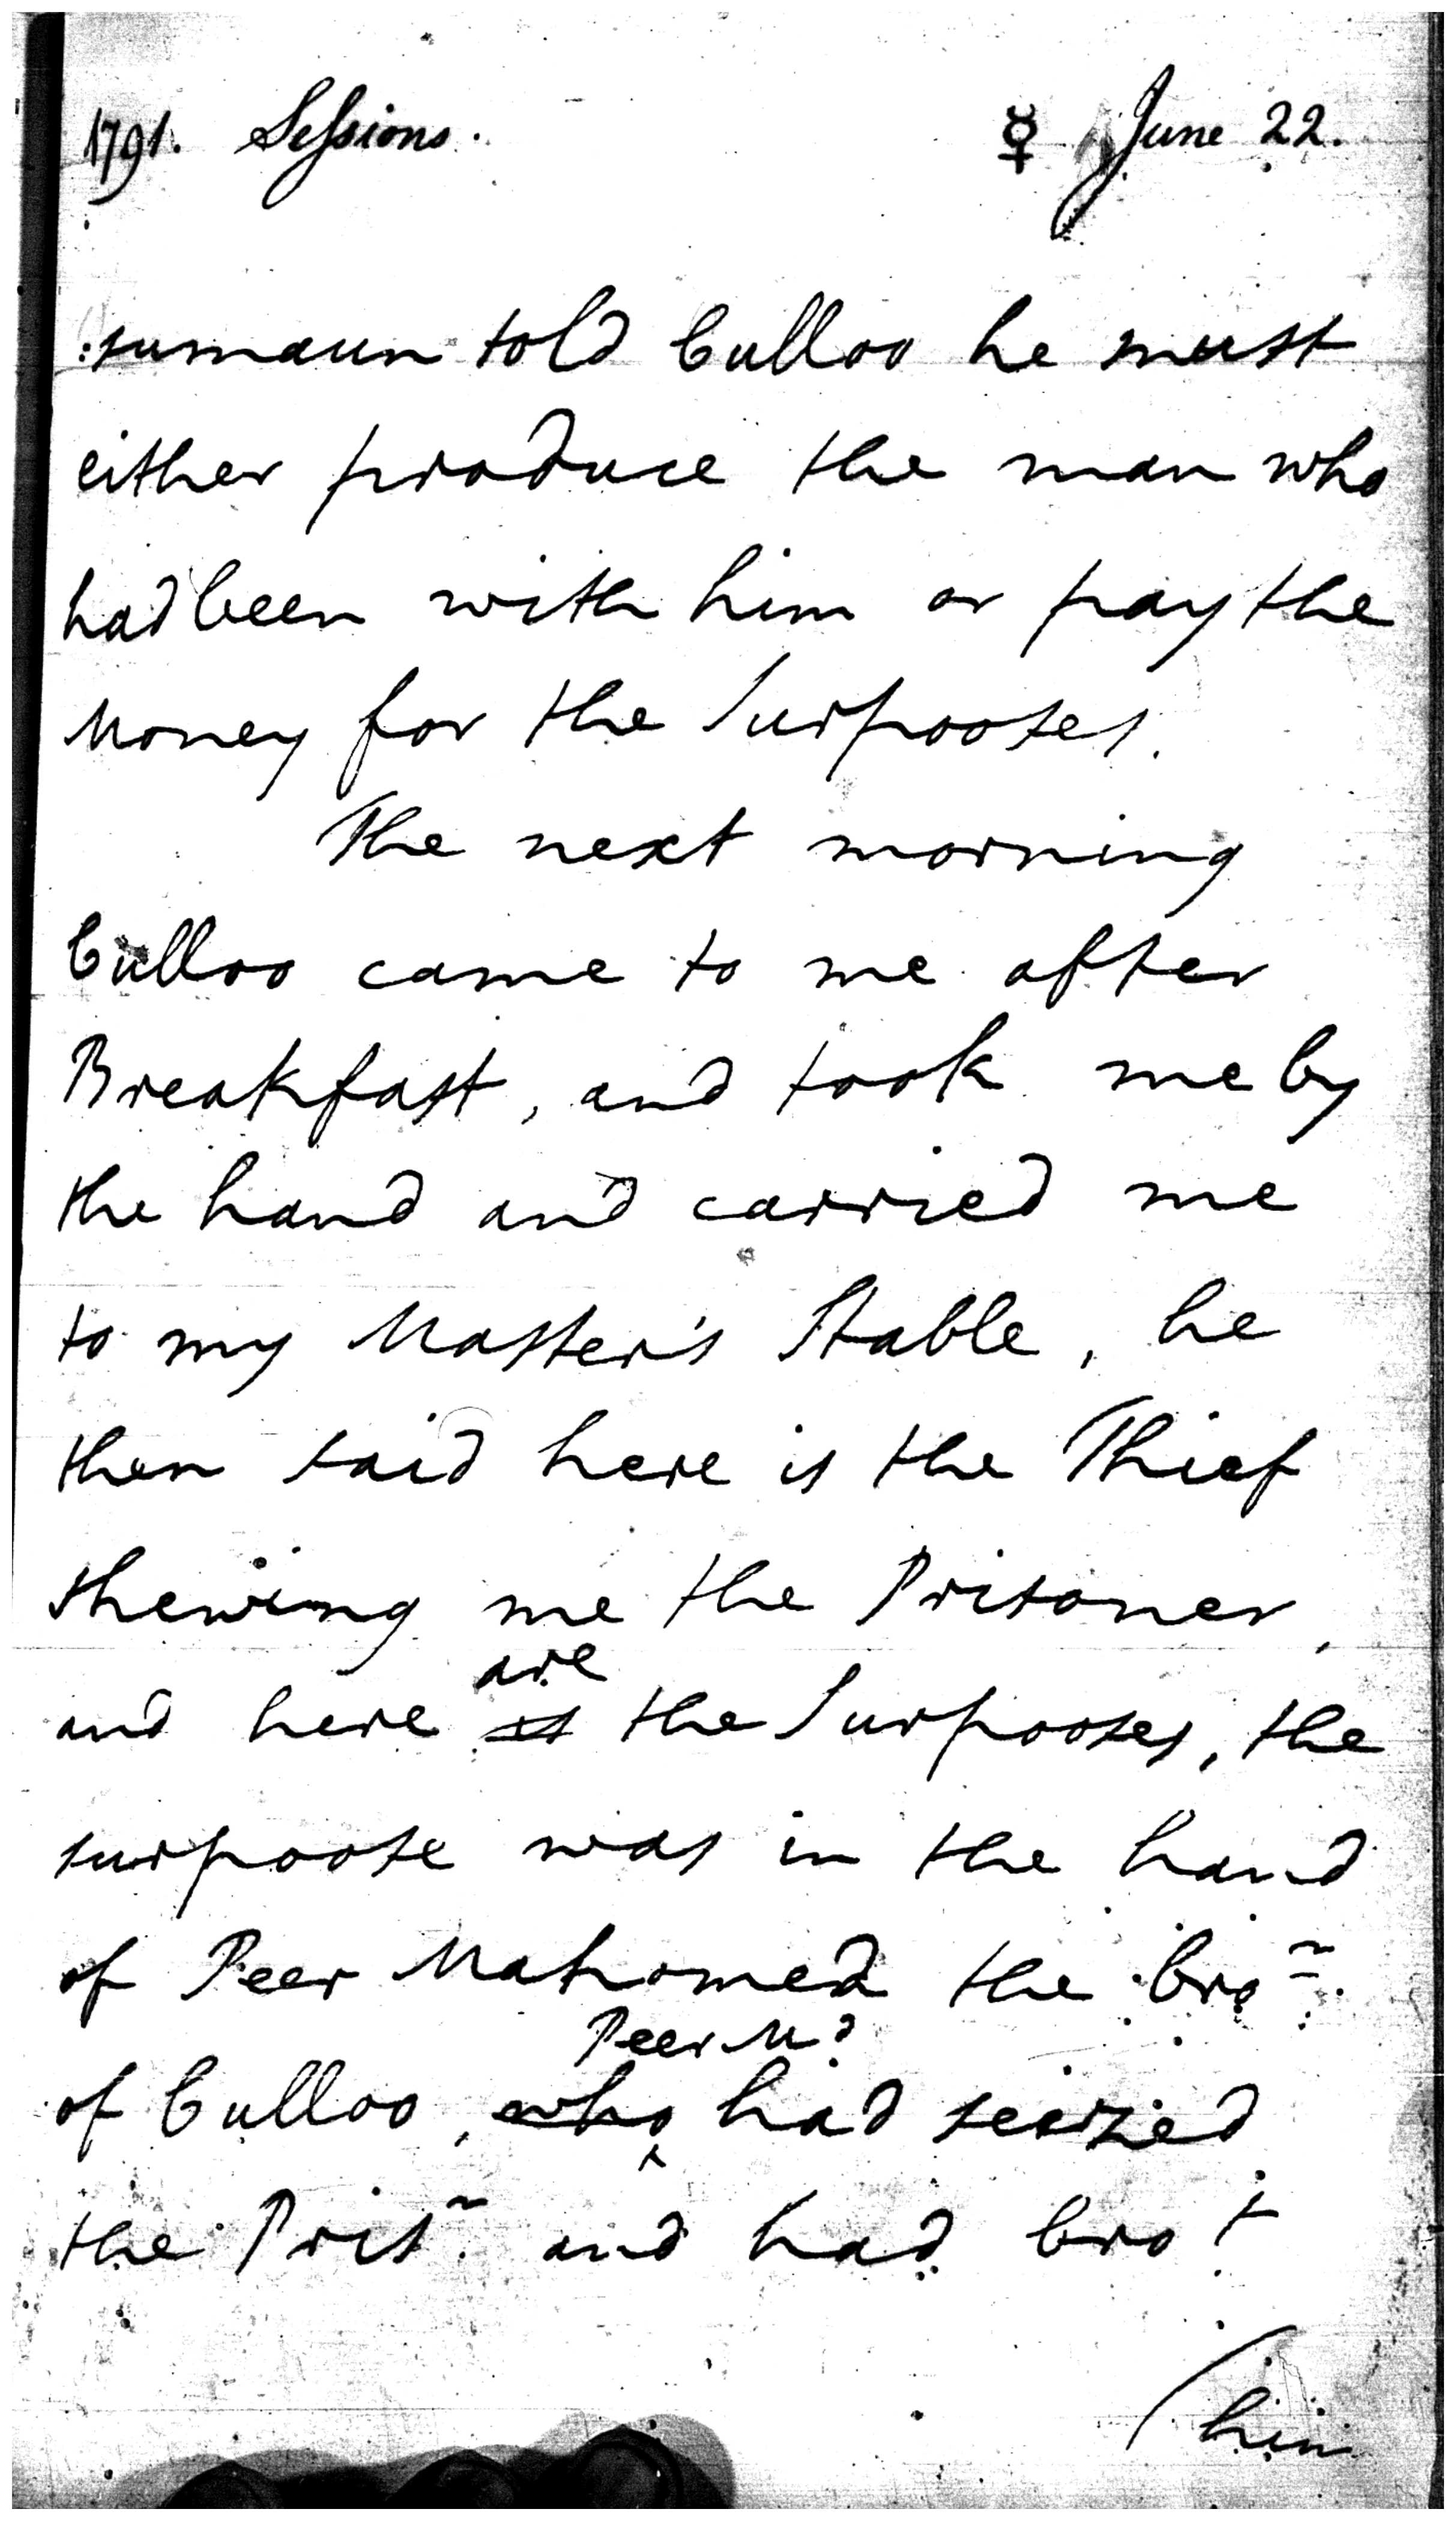 1791. Sessions. ☿ June 22.
:sumaun told Culloo he must
either produce the man who
had been with him or pay the
Money for the Surpooses.
The next morning
Culloo came to me after
Breakfast, and took me by
the hand and carried me
to my Master's Stable, he
then said here is the Thief
shewing me the Prisoner,
are
and here is the Surpooses, the
surpoose was in the hand
of Peer Mahomed the bro~
Peer Md
of Culloo, who had seized
the Pris~ and had bro t
(him